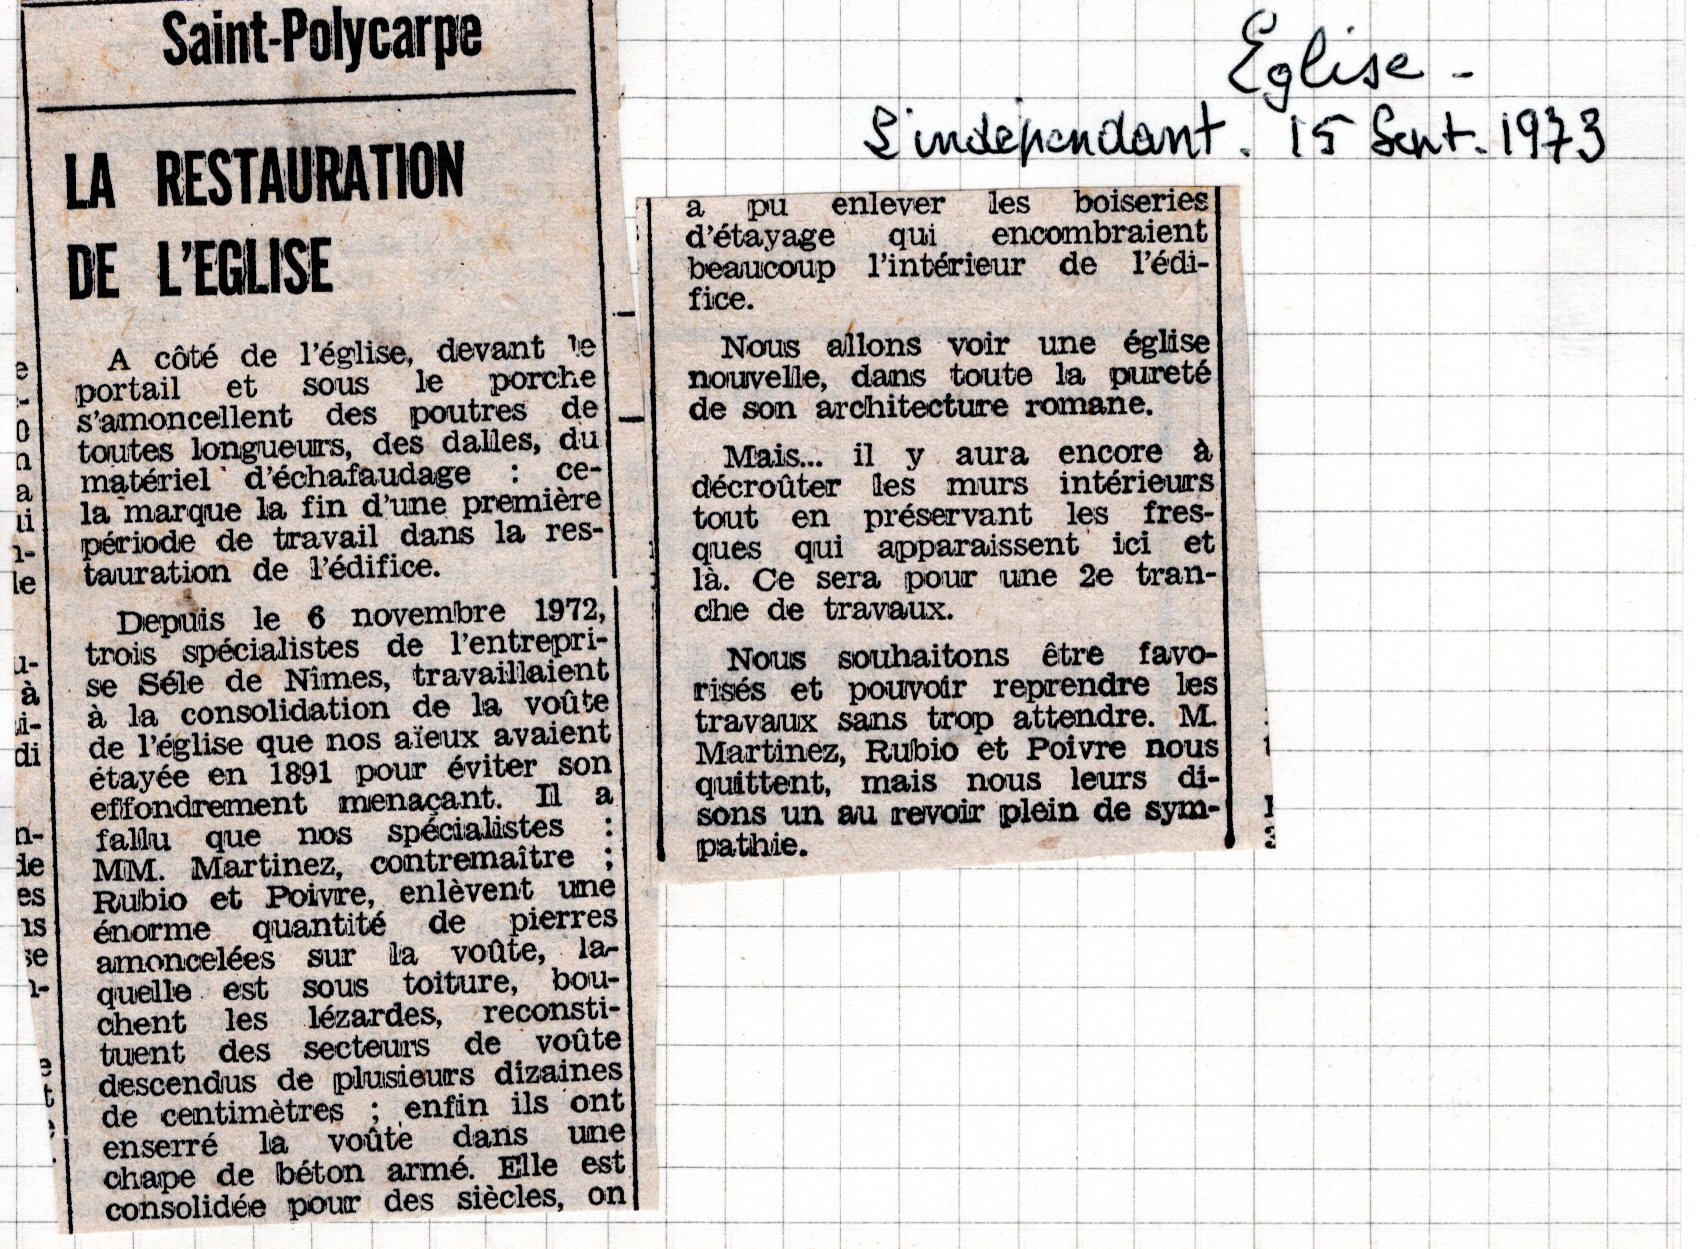 Saint-Polycarpe
LA RESTAURATION
DE L'EGLISE
A côté de l'église, devant le
portail et sous le porche
s'amoncellent des poutres de
toutes longueurs, des dalles, du
matériel d'échafaudage : ce-
la marque la fin d'une première
période de travail dans la res-
tauration de l'édifice.
Depuis le 6 novembre 1972,
trois spécialistes de l'entrepri-
se Séle de Nîmes, travaillaient
à la consolidation de la voûte
de l'église que nos aïeux avaient
étayée en 1891 pour éviter son
effondrement menaçant. Il a
fallu que nos spécialistes :
MM. Martinez, contremaître ;
Rubio et Poivre, enlèvent une
énorme quantité de pierres
amoncelées sur la voûte, la-
quelle est sous toiture, bou-
chent les lézardes, reconsti-
tuent des secteurs de voûte
descendus de plusieurs dizaines
de centimètres ; enfin ils ont
enserré la voûte dans une
chape de béton armé. Elle est
consolidée pour des siècles, on
Eglise -
L'indépendant. 15 Sept. 1973
a pu enlever les boiseries
d'étayage qui encombraient
beaucoup l'intérieur de l'édi-
fice.
Nous allons voir une église
nouvelle, dans toute la pureté
de son architecture romane.
Mais... il y aura encore à
décroûter les murs intérieurs
tout en préservant les fres-
ques qui apparaissent ici et
là. Ce sera pour une 2e tran-
che de travaux.
Nous souhaitons être favo-
risés et pouvoir reprendre les
travaux sans trop attendre. M.
Martinez, Rubio et Poivre nous
quittent, mais nous leurs di-
sons un au revoir plein de sym-
pathie.